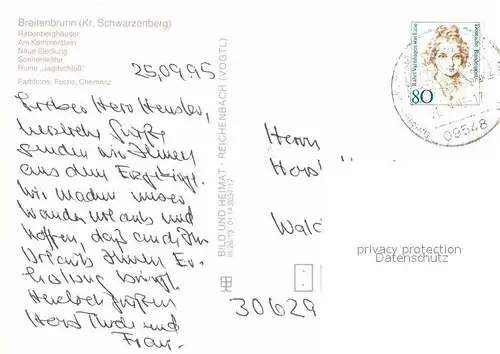 Breitenbrunn (Kr. Schwarzenberg)
Rabenberghäuser
Am Kammerstein
Neue Siedlung
Sonnenleithe
Ruine „Jagdschloß"
Farbfotos: Fuchs, Chemnitz
25.09.95
Lieber Herr Hensler,
herzliche Grüße
senden wir Ihnen
aus dem Erzgebirge.
Wir machen unseren
Wanderurlaub und
hoffen, daß auch Ihr
Urlaub Ihnen Er-
holung bringt.
Herzlich grüßen
Horst und
Frau.
BILD UND HEIMAT · REICHENBACH (VOGTL)
Herrn
Horst
Wald
30629
Rahel Varnhagen von Ense
Deutsche Bundespost
80
09548
privacy protection
Datenschutz